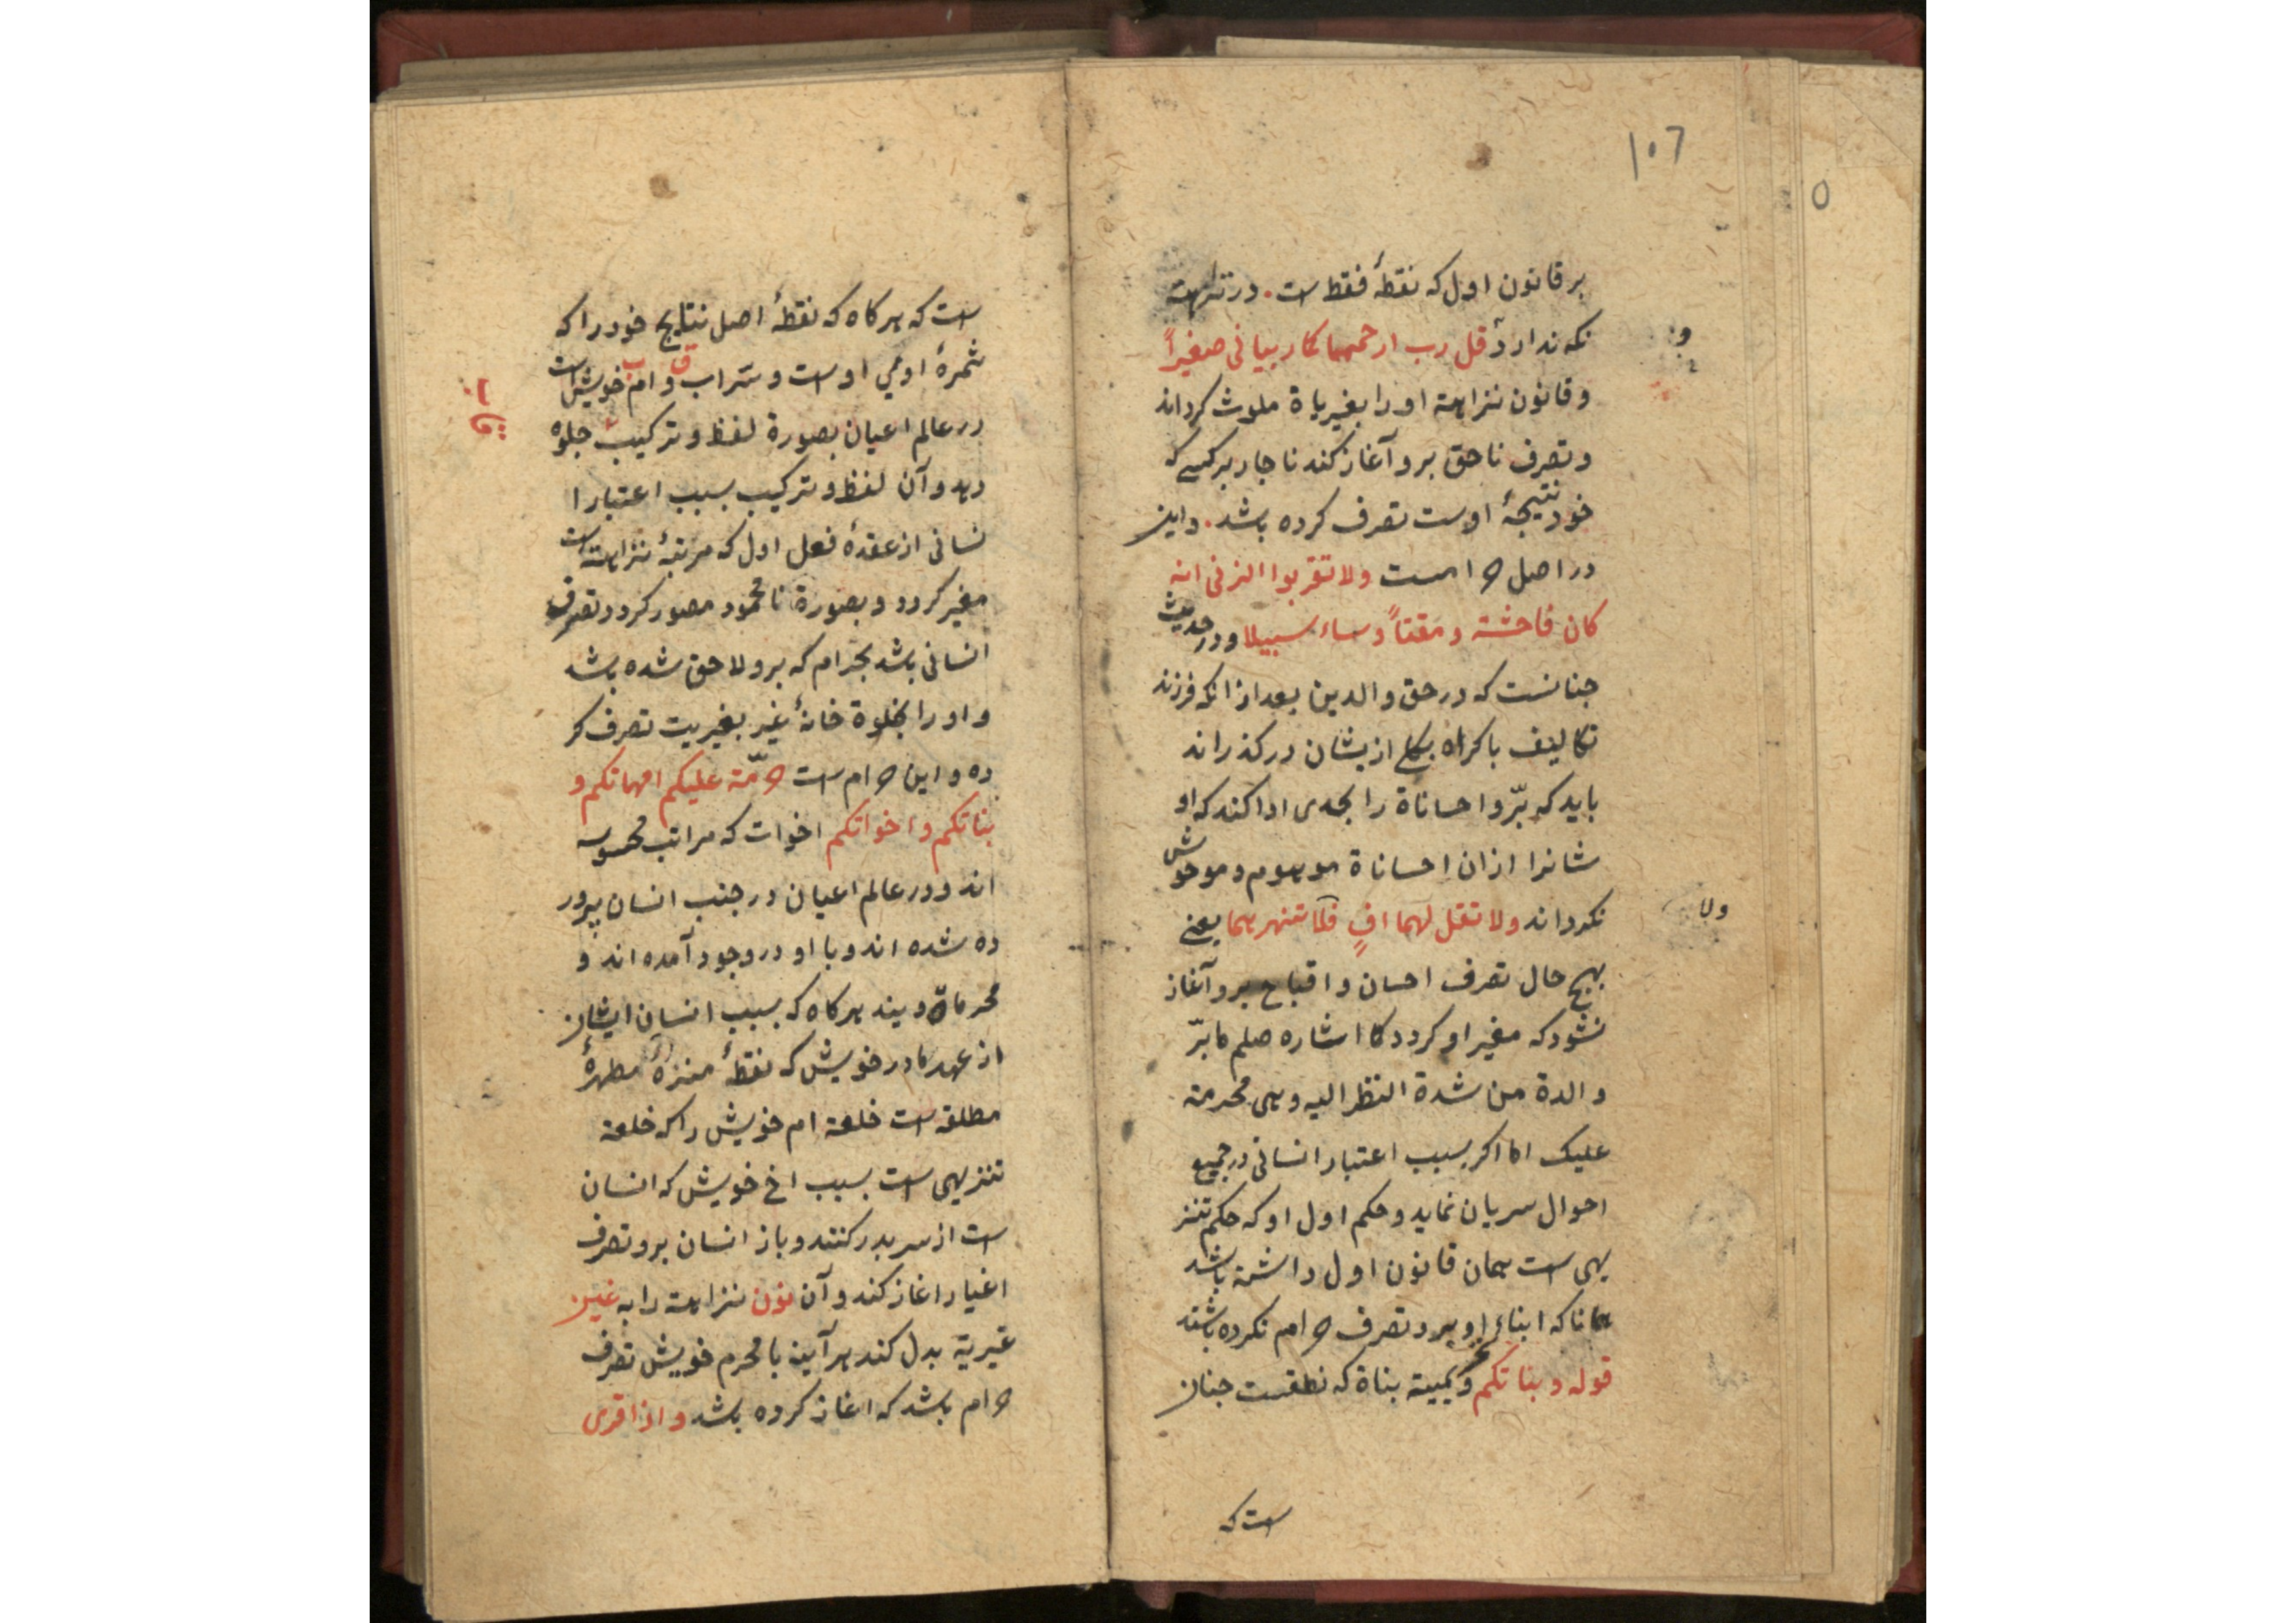 ١٠٦
بر قانون اول که نقطهٔ فقط است. در تنزاهته
نکه ندارد قل رب ارحمهما کما ربیانی صغیراً
و قانون نزاهته او را بغیریاة ملوث کرداند
و تصرف ناحق برو آغاز کند ناجار بر کسی که
خود نتیجهٔ اوست تصرف کرده باشد. و این
در اصل حرامست ولا تقربوا الزنی انه
کان فاحشة و مقتاً و ساء سبیلا و در حدیث
جنانست که در حق والدین بعد از انکه فرزند
تکالیف باکراه بکلی ازیشان درکذراند
باید که برّ و احساناة را بحدی ادا کند که او
شانرا ازان احساناة موهوم و موحوش
نکرداند ولا تقل لهما افٍ فلا تنهرهما یعنی
بهیج حال تصرف احسان و اقباح برو آغاز
نشود که مغیر او کردد کما اشاره صلم ما برّ
والدة من شدة النظر الیه و هی محرمة
علیک اما اکر بسبب اعتبار انسانی در جمیع
احوال سریان نماید و حکم اول او که حکم تنز
یهی است همان قانون اول داشته باشد
همانا که ابناء او برو تصرف حرام نکرده باشند
قوله و بناتکم و تحریمیة بناة که نطقست جنان
است که
است که هرکاه که نقطهٔ اصل نتایج خود را که
ثمرهٔ اومی اوست و سراب و ام خویش است
در عالم اعیان بصورة لفظ و ترکیب جلوه
دهد و آن لفظ و ترکیب بسبب اعتبار ا
نسانی از عقدهٔ فعل اول که مرتبهٔ نزاهته است
مغیر کردد و بصورة نامحمود مصور کردد تصرف
انسانی باشد بحرام که برو لاحق شده باشد
و او را بخلوة خانهٔ غیر بغیریت تصرف کر
ده و این حرام است حرّمة علیکم امهاتکم و
بناتکم و اخواتکم اخوات که مراتب محسوسه
اند و در عالم اعیان در جنب انسان پرور
ده شده اند و با او در وجود آمده اند و
محرماة ویند هرکاه که بسبب انسان ایشان
از عهد مادر خویش که نقطهٔ منزهٔ مطهرهٔ
مطلقه است خلعة ام خویش را که خلعة
تنزیهی است بسبب اخ خویش که انسان
است از سر بدر کنند و باز انسان برو تصرف
اغیار اغاز کند و آن نون نزاهته را به غین
غیریة بدل کند هر آیین با محرم خویش تصرف
حرام باشد که اغاز کرده باشد و اذا قری